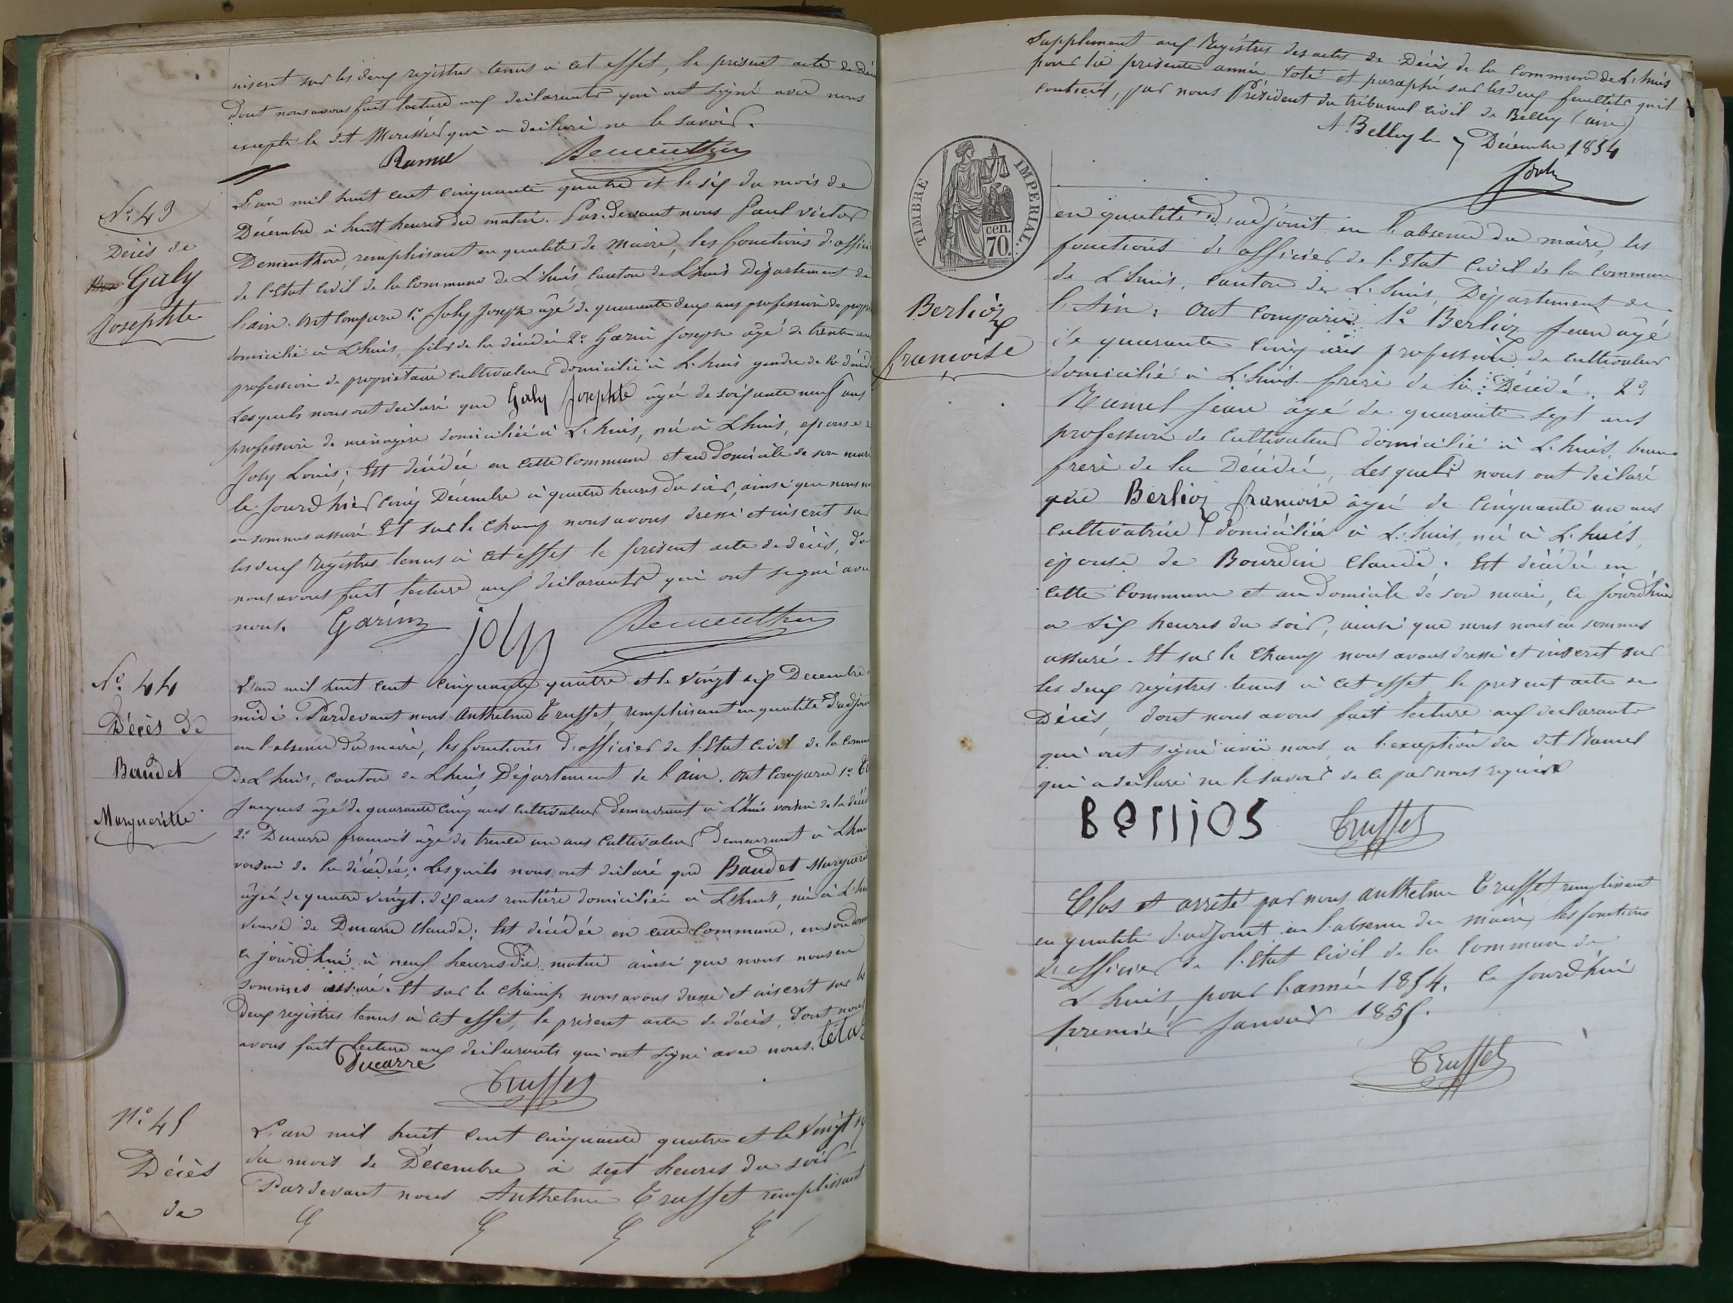 inscrit sur les deux registres tenus à cet effet, le présent acte de décès
dont nous avons fait lecture aux déclarants qui ont signé avec nous
excepté le dit qui a déclaré ne le savoir.
Dementhon
N° 43
Décès de
Galy
Josephte
L'an mil huit cent cinquante quatre et le six du mois de
Décembre à huit heures du matin. Pardevant nous Paul Victor
Dementhon, remplissant en qualité de maire, les fonctions d'officier
de l'Etat Civil de la Commune de Lhuis Canton de Lhuis Département de
l'ain. Ont comparu 1° Joly Joseph âgé de quarante deux ans profession de
domicilié à Lhuis, fils de la décédée 2° Garin Joseph âgé de trente ans
profession de propriétaire cultivateur domicilié à Lhuis gendre de la décédée
Lesquels nous ont déclaré que Galy Josephte âgée de soixante neuf ans
profession de ménagère domiciliée à Lhuis, née à Lhuis, épouse de
Joly Louis; Est décédée en cette commune et au domicile de son mari
le jourd'hier cinq Décembre à quatre heures du soir, ainsi que nous nous
en sommes assuré Et sur le champ nous avons dressé et inscrit sur
les deux registres tenus à cet effet le présent acte de décès, dont
nous avons fait lecture aux déclarants qui ont signé avec
nous. Garin joly Dementhon
N° 44
Décès de
Baudet
Marguerite
L'an mil huit cent cinquante quatre et le vingt six Decembre à
midi. Pardevant nous Anthelme Truffet, remplissant en qualité d'adjoint
en l'absence du maire, les fonctions d'officier de l'Etat Civil de la Commune
De Lhuis, canton de Lhuis, Département de l'ain. Ont comparu 1°
Jacques âgé de quarante cinq ans cultivateur demeurant à Lhuis voisin de la décédée
2° Ducarre francois âgé de trente un ans cultivateur demeurant à Lhuis
voisin de la décédée; Lesquels nous ont déclaré que Baudet Marguerite
âgée de quatre vingt dix ans rentière domiciliée à Lhuis, née à Lhuis
veuve de Ducarre Claude; Est décédée en cette Commune, en son domicile
ce jourd'hui à neuf heures du matin ainsi que nous nous en
sommes assuré. Et sur le champ nous avons dressé et inscrit sur les
deux registres tenus à cet effet, le présent acte de décès, dont nous
avons fait lecture aux déclarants qui ont signé avec nous.
Ducarre
Truffet
N° 45
Décès
de
L'an mil huit cent cinquante quatre et le vingt
du mois de Décembre à sept heures du soir
Pardevant nous Anthelme Truffet remplissant
Supplément aux Registres des actes de Décès de la Commune de Lhuis
pour la présente année Coté et paraphé sur les deux feuillets qu'il
contient, par nous Président du tribunal civil de Belley (ain)
A Belley le 7 Décembre 1854
TIMBRE IMPERIAL.
cen.
70.
Berlioz
francoise
en qualité d'adjoint en l'absence du maire, les
fonctions de officier de l'Etat Civil de la Commune
de Lhuis, canton de Lhuis, Département de
l'Ain; Ont comparu 1° Berlioz Jean âgé
de quarante cinq ans profession de cultivateur
domicilié à Lhuis frère de la Décédé. 2°
Ramel Jean âgé de quarante sept ans
profession de cultivateur domicilié à Lhuis, beau
frere de la Décédée, Lesquels nous ont déclaré
que Berlioz francoise âgée de cinquante un ans
cultivatrice domiciliée à Lhuis née à Lhuis,
épouse de Bourdin Claude. Est décédée en
cette Commune et au domicile de son mari, ce jourd'hui
a six heures du soir, ainsi que nous nous en sommes
assuré. Et sur le champ nous avons dressé et inscrit sur
les deux registres tenus à cet effet le présent acte de
Décès, dont nous avons fait lecture aux déclarants
qui ont signé avec nous a l'exception du dit Ramel
qui a déclaré ne le savoir de ce par nous requis
Berlios Truffet
Clos et arrêté par nous Anthelme Truffet, remplissant
en qualité d'adjoint en l'absence du maire, les fonctions
d'officier de l'Etat Civil de la Commune de
Lhuis pour l'année 1854. Ce jourd'hui
premier Janvier 1855.
Truffet